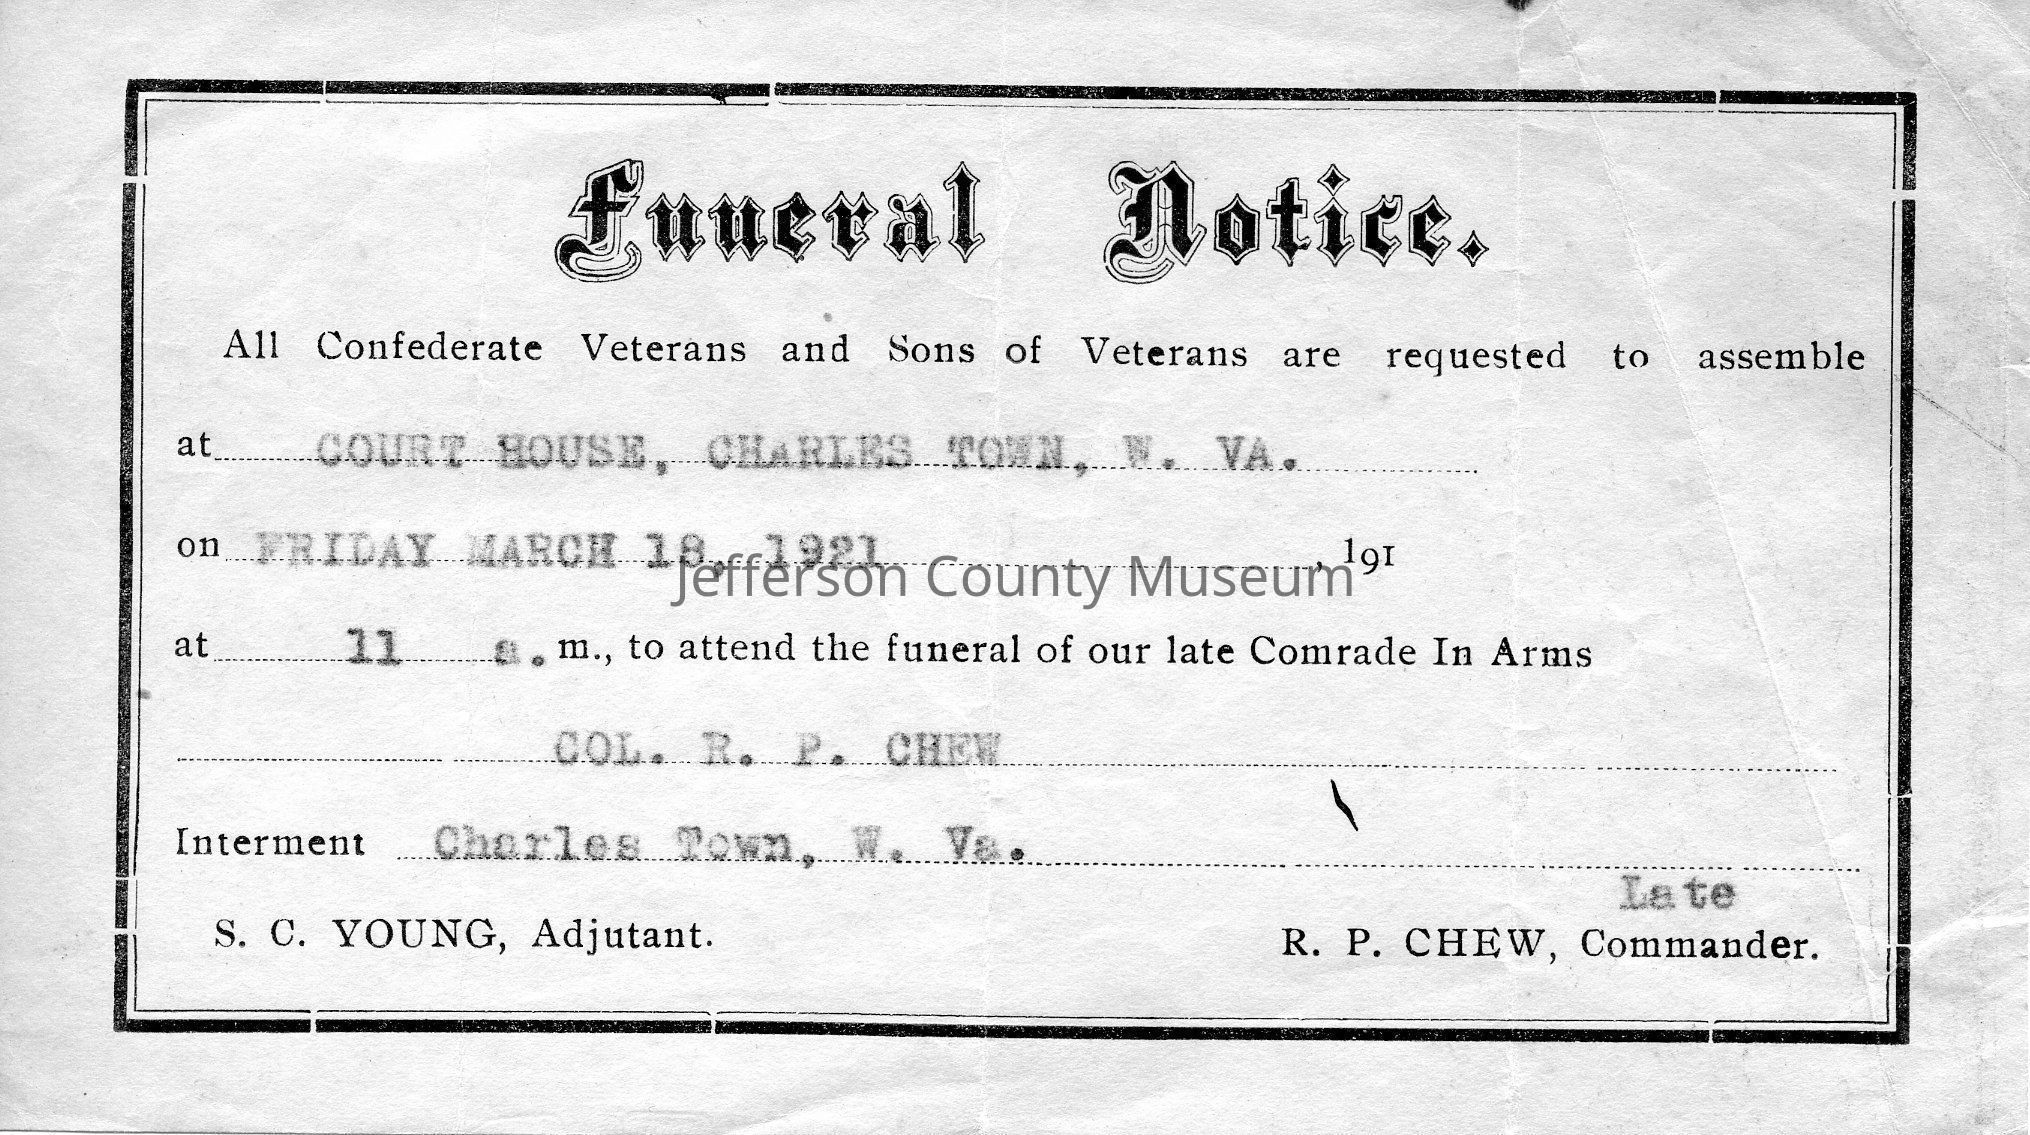 Funeral Notice.
All Confederate Veterans and Sons of Veterans are requested to assemble
at COURT HOUSE, CHARLES TOWN, W. VA.
on FRIDAY MARCH 18, 1921, 191
Jefferson County Museum
at 11 a. m., to attend the funeral of our late Comrade In Arms
COL. R. P. CHEW
Interment Charles Town, W. Va.
Late
S. C. YOUNG, Adjutant. R. P. CHEW, Commander.